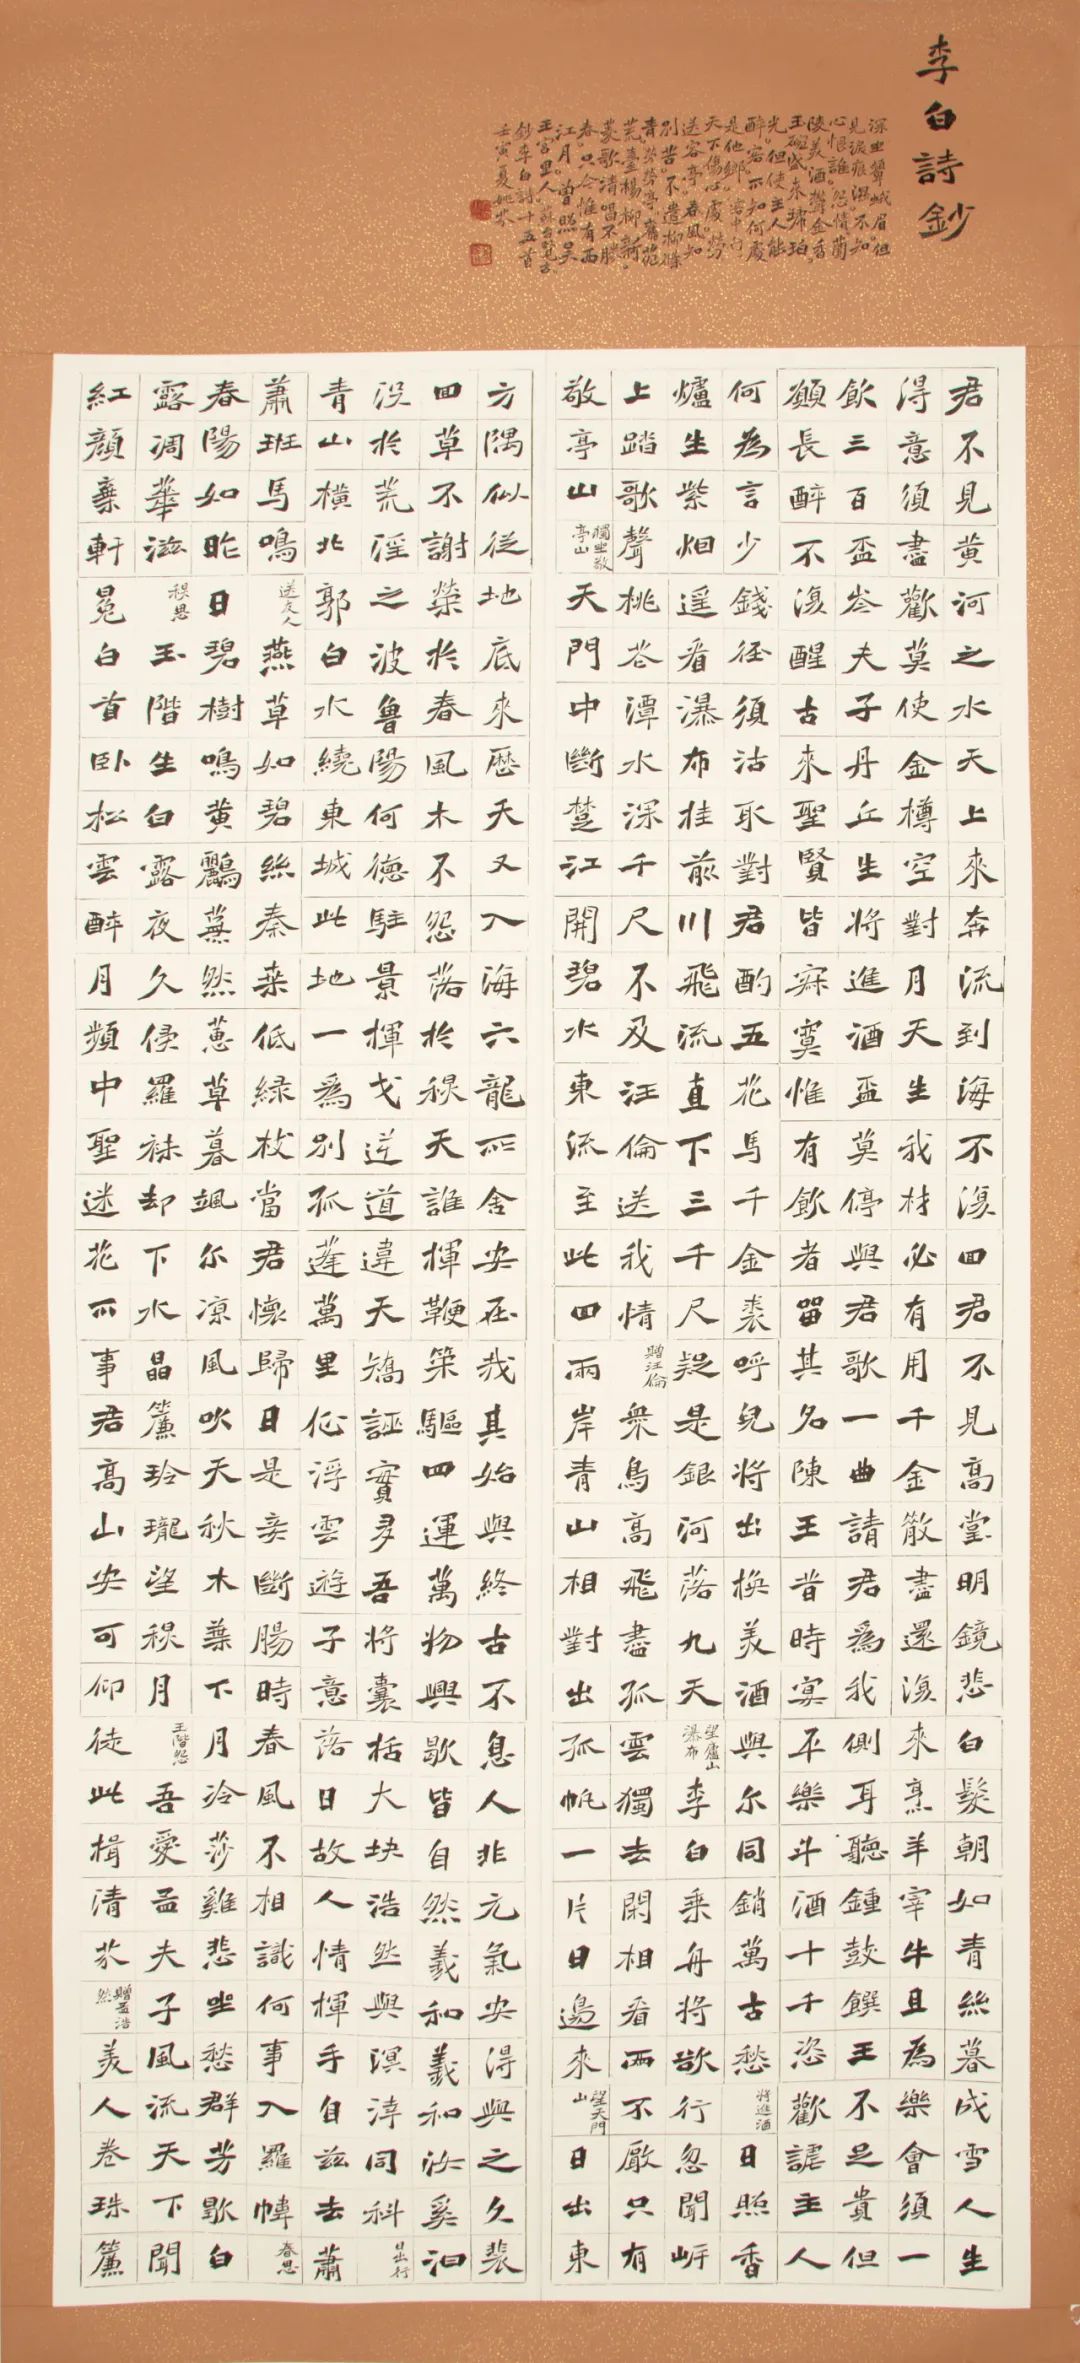 李白詩鈔
深坐顰蛾眉但
見淚痕濕不知
心恨誰怨情蘭
陵美酒鬱金香
玉碗盛來琥珀
光但使主人能
醉客不知何處
是他鄉客中行
天下傷心處勞勞
送客亭春風知
別苦不遣柳條
青勞勞亭舊苑
荒臺楊柳新
菱歌清唱不勝
春只今惟有西
江月曾照吳
王宮里人蘇台覽古
鈔李白詩十五首
壬寅夏姚
君不見黃河之水天上來奔流到海不復回君不見高堂明鏡悲白髮朝如青絲暮成雪人生
得意須盡歡莫使金樽空對月天生我材必有用千金散盡還復來烹羊宰牛且為樂會須一
飲三百盃岑夫子丹丘生將進酒盃莫停與君歌一曲請君為我側耳聽鍾鼓饌玉不足貴但
願長醉不復醒古來聖賢皆寂寞惟有飲者留其名陳王昔時宴平樂斗酒十千恣歡謔主人
何為言少錢徑須沽取對君酌五花馬千金裘呼兒將出換美酒與尔同銷萬古愁將進酒日照香
爐生紫烟遥看瀑布挂前川飛流直下三千尺疑是銀河落九天望廬山瀑布李白乘舟將欲行忽聞岸
上踏歌聲桃花潭水深千尺不及汪倫送我情贈汪倫衆鳥高飛盡孤雲獨去閑相看兩不厭只有
敬亭山獨坐敬亭山天門中斷楚江開碧水東流至此回兩岸青山相對出孤帆一片日邊來望天門山日出東
方隅似從地底來歷天又入海六龍所舍安在哉其始與終古不息人非元氣安得與之久裴
回草不謝榮於春風木不怨落於秋天誰揮鞭策驅四運萬物興歇皆自然羲和羲和汝奚汩
没於荒淫之波魯陽何德駐景揮戈逆道違天矯誣實多吾將囊括大塊浩然與溟涬同科日出行
青山橫北郭白水繞東城此地一爲別孤蓬萬里征浮雲遊子意落日故人情揮手自茲去蕭
蕭班馬鳴送友人燕草如碧絲秦桑低綠枝當君懷歸日是妾斷腸時春風不相識何事入羅幃春思
春陽如昨日碧樹鳴黃鸝蕪然蕙草暮颯尔凉風吹天秋木葉下月冷莎雞悲坐愁群芳歇白
露凋華滋秋思玉階生白露夜久侵羅袜却下水晶簾玲瓏望秋月玉階怨吾愛孟夫子風流天下聞
紅顏棄軒冕白首卧松雲醉月頻中聖迷花不事君高山安可仰徒此揖清芬贈孟浩然美人卷珠簾